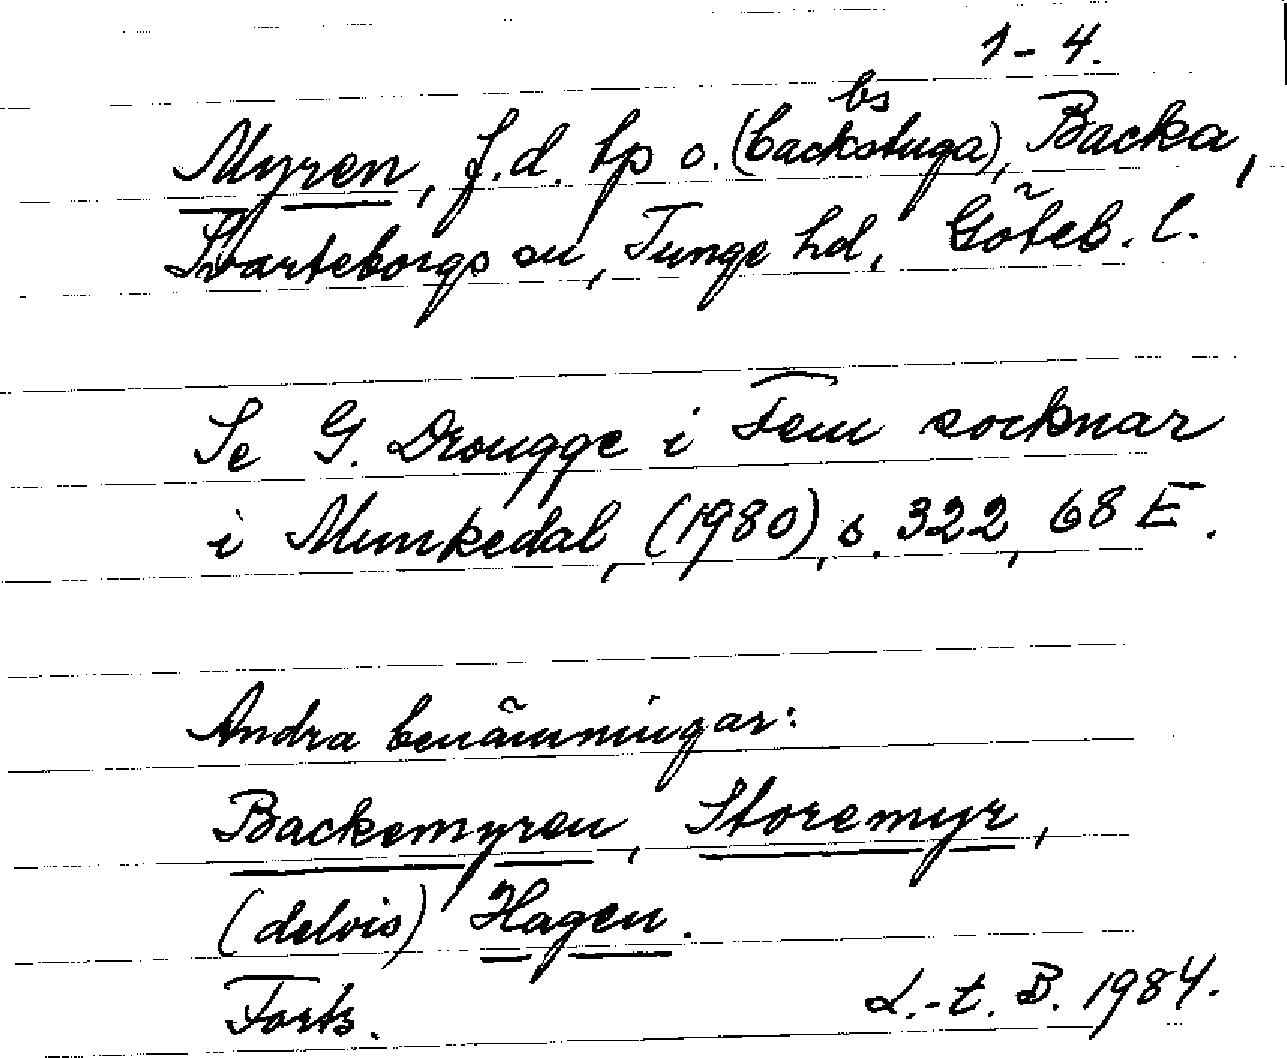 1-4.
bs
Myren, f.d. tp o. (backstuga), Backa,
Svarteborgs sn, Tunge hd, Göteb. l.
Se G. Drougge i Fem socknar
i Munkedal, (1980), s. 322, 68 E.
Andra benämningar:
Backemyren, Storemyr,
(delvis) Hagen.
Forts.
L.-t. B. 1984.